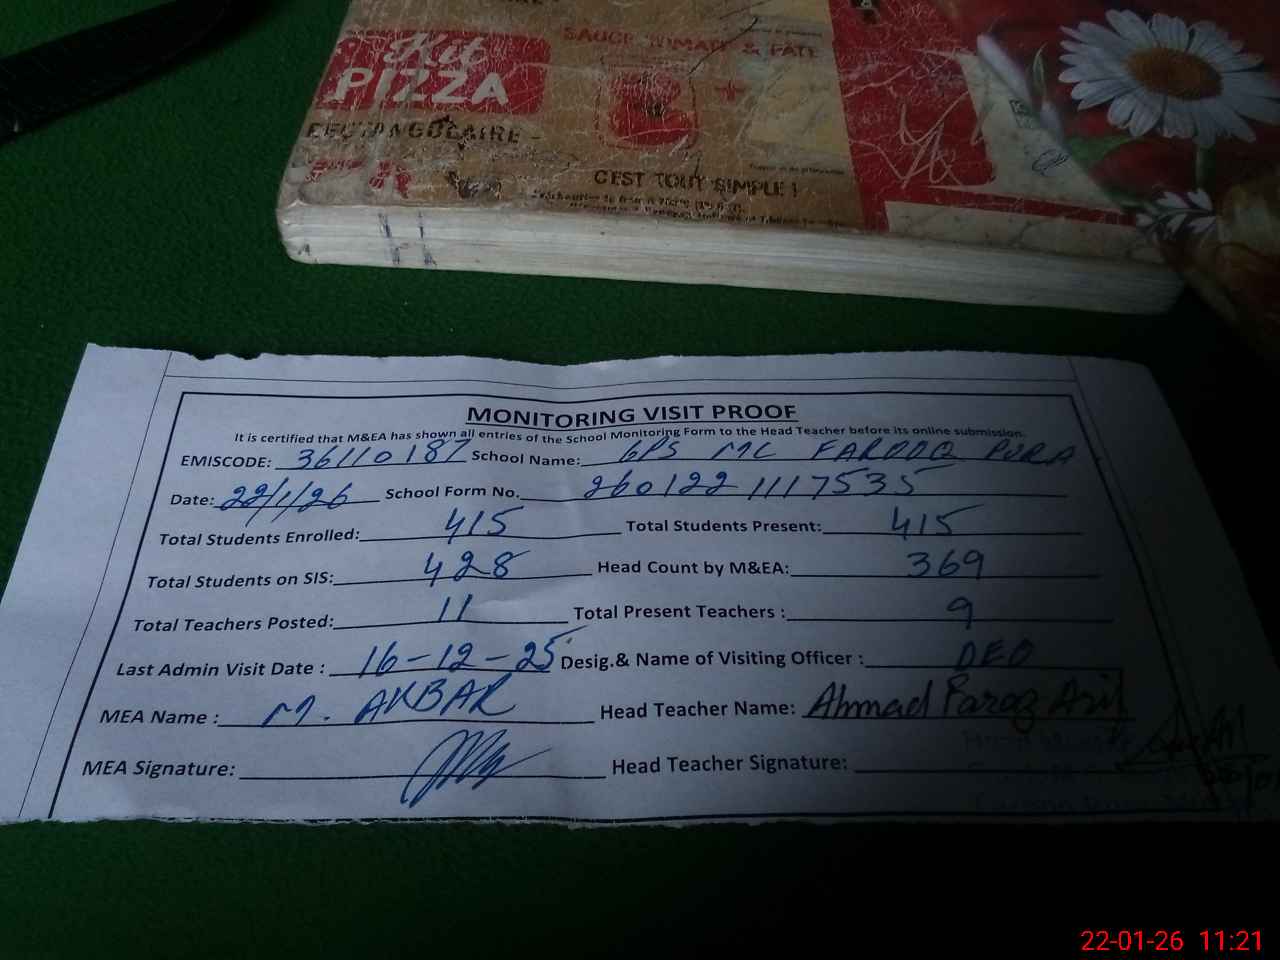 Kit
PIZZA
SAUCE TOMATE & PATE
RECTANGULAIRE -
C'EST TOUT SIMPLE !
MONITORING VISIT PROOF
It is certified that M&EA has shown all entries of the School Monitoring Form to the Head Teacher before its online submission.
EMISCODE: 36110187 School Name: GPS MC FAROOQ PURA
Date: 22/1/26 School Form No. 260122 1117535
Total Students Enrolled: 415 Total Students Present: 415
Total Students on SIS: 428 Head Count by M&EA: 369
Total Teachers Posted: 11 Total Present Teachers : 9
Last Admin Visit Date : 16-12-25 Desig.& Name of Visiting Officer : DEO
MEA Name : M. AKBAR Head Teacher Name: Ahmad Faraz
MEA Signature: Head Teacher Signature:
22-01-26 11:21